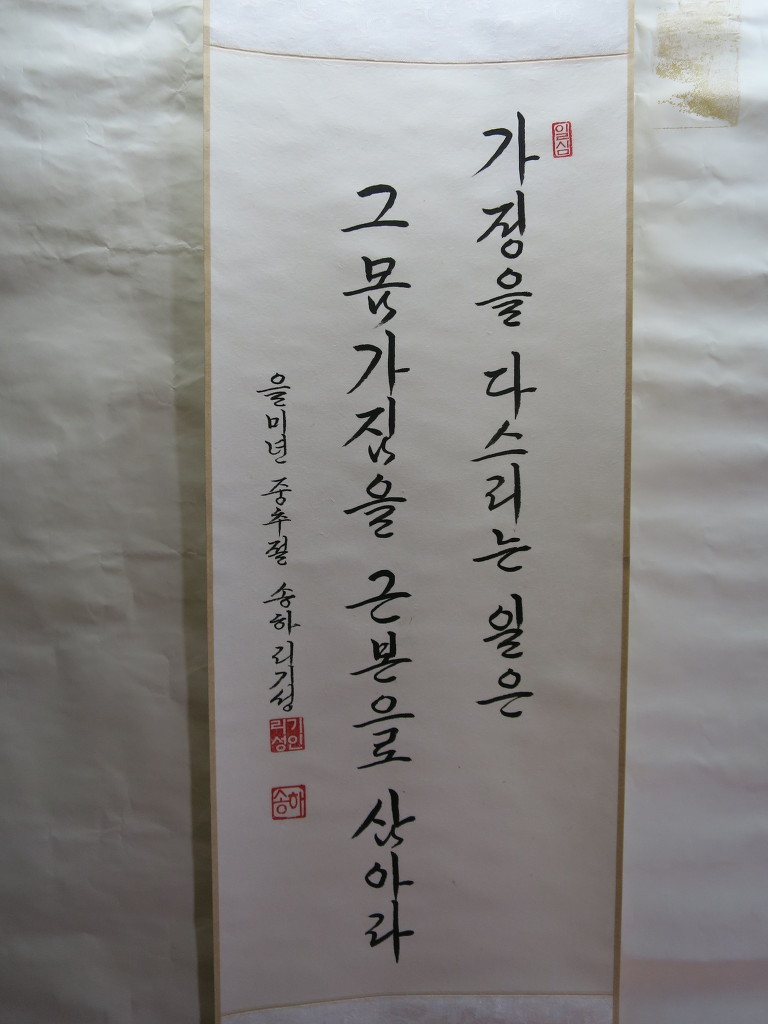 일심
가정을 다스리는 일은
그 몸가짐을 근본으로 삼아라
을미년 중추절 송하 리기성
리기
성인
송하